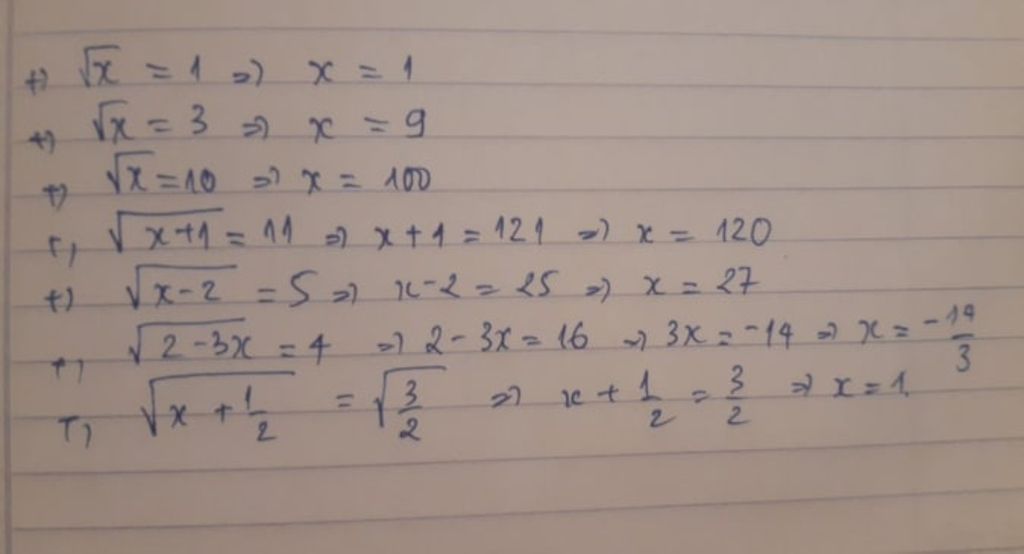 +) √x = 1 => x = 1
+) √x = 3 => x = 9
+) √x = 10 => x = 100
+) √(x+1) = 11 => x + 1 = 121 => x = 120
+) √(x-2) = 5 => x-2 = 25 => x = 27
+) √(2-3x) = 4 => 2-3x = 16 => 3x = -14 => x = -14/3
+) √(x + 1/2) = √(3/2) => x + 1/2 = 3/2 => x = 1.